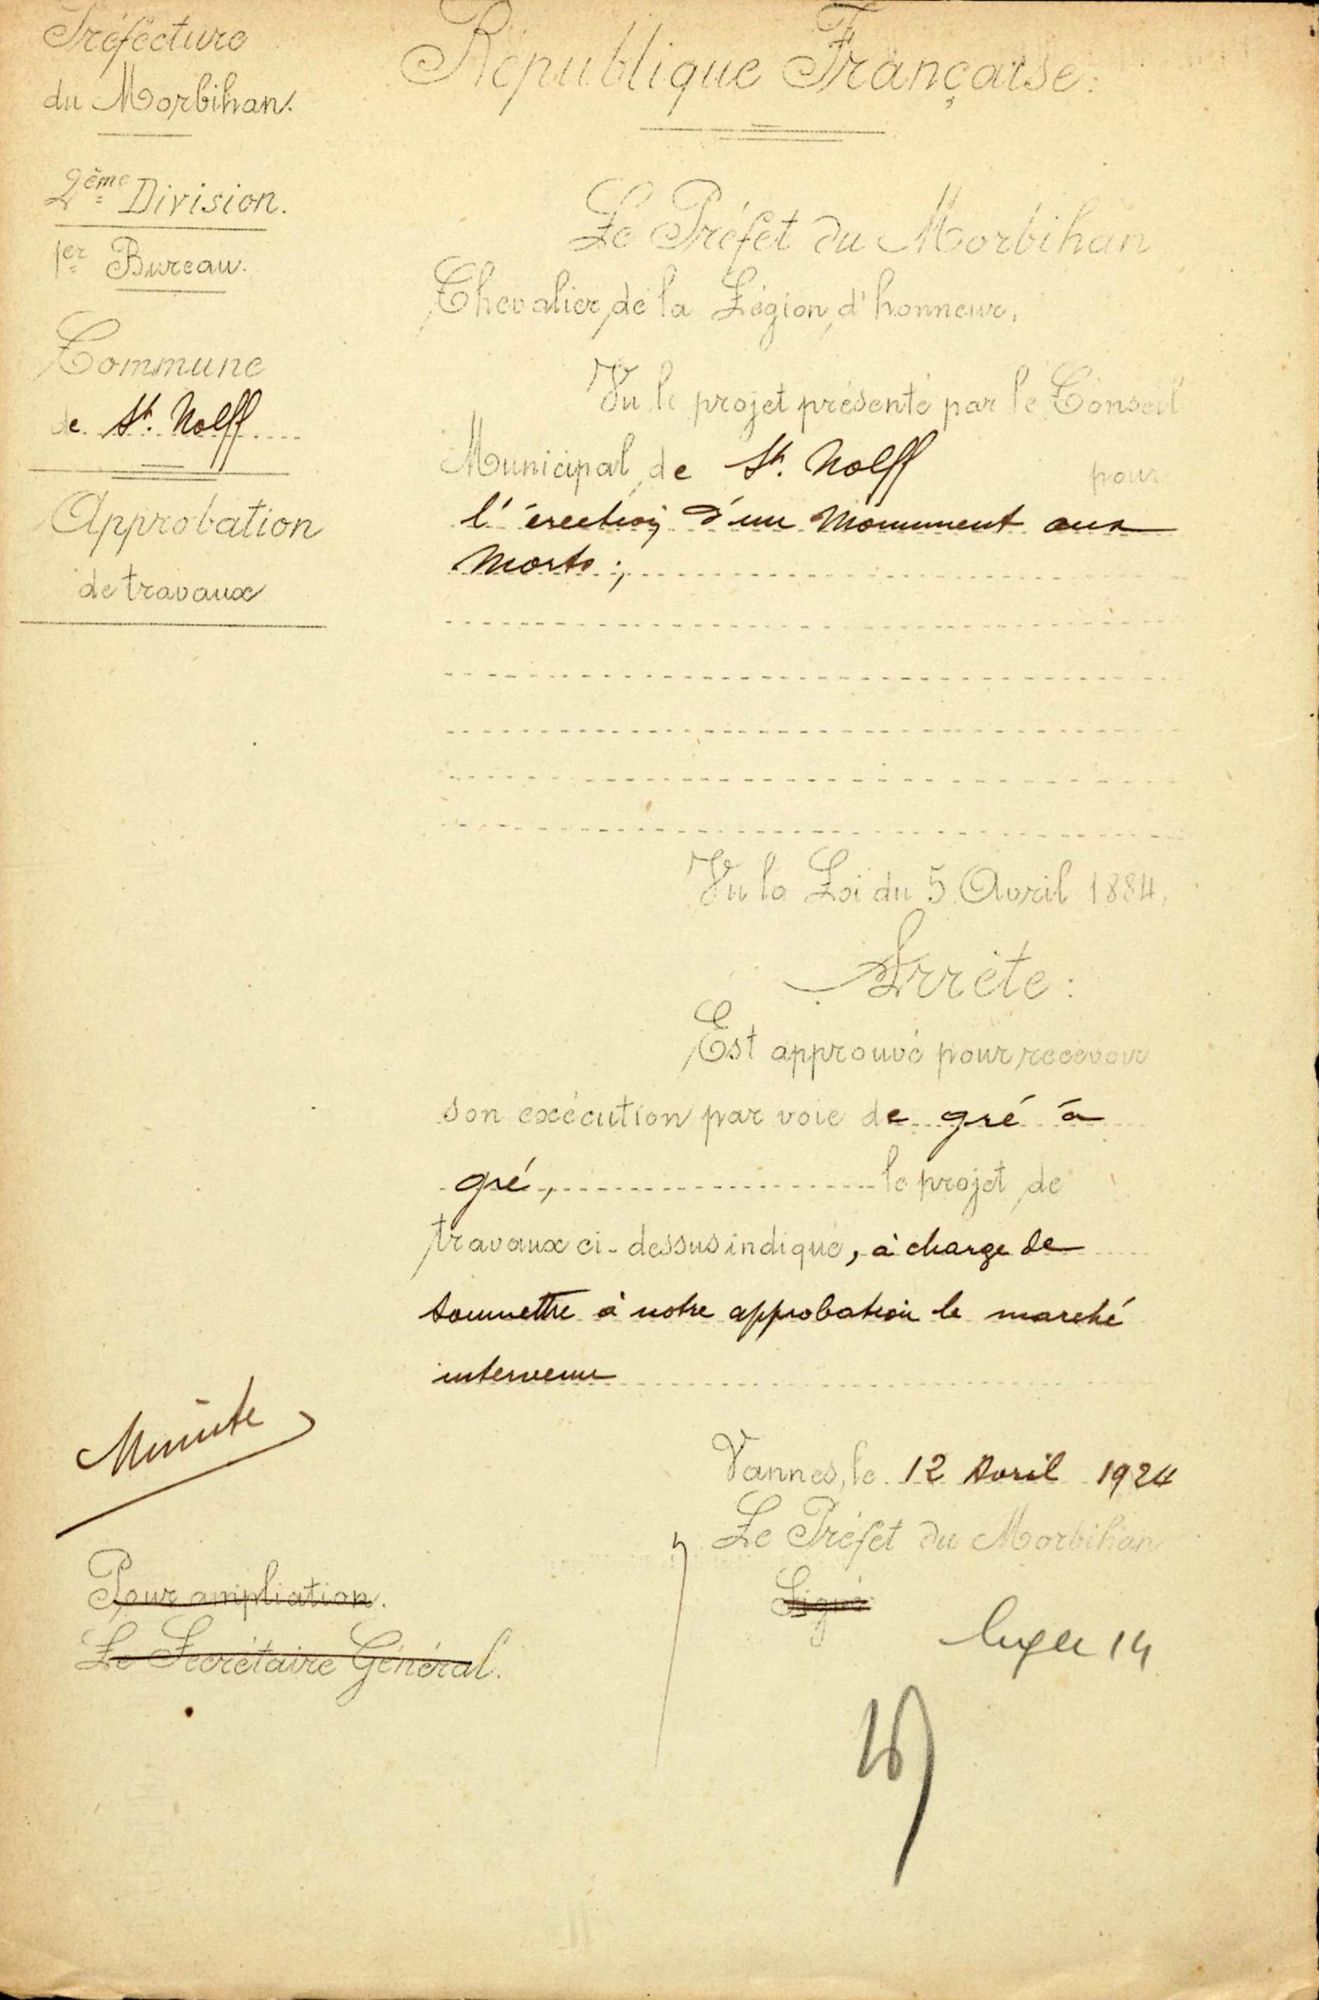 Préfecture
du Morbihan.
2ème Division.
1er Bureau.
Commune
de St. Nolff
Approbation
de travaux
République Française.
Le Préfet du Morbihan
Chevalier de la Légion d'honneur,
Vu le projet présenté par le Conseil
Municipal de St. Nolff pour
l'érection d'un Monument aux
Morts ;
Vu la Loi du 5 Avril 1884,
Arrête :
Est approuvé pour recevoir
son exécution par voie de gré à
gré, le projet de
travaux ci-dessus indiqué, à charge de
soumettre à notre approbation le marché
intervenu
Vannes, le 12 Avril 1924
Le Préfet du Morbihan
Signé
Minute
Pour ampliation.
Le Secrétaire Général.